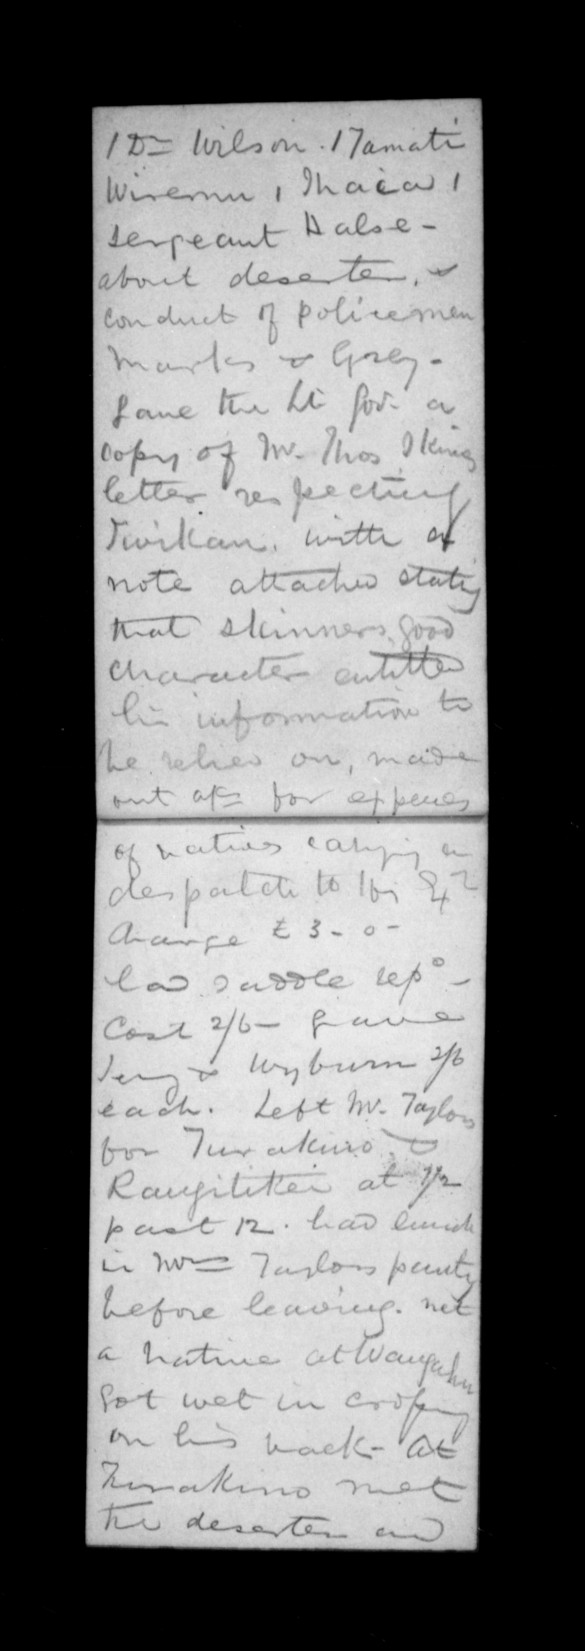 1 Dr Wilson. 1 Tamati
Wiremu, 1 Ihaia 1
Sergeant Halse -
about deserter, &
conduct of policemen
Marks & Grey -
Gave the Lt Gov. a
copy of Mr. Thos Skinner
letter respecting
with a
note attached stating
that Skinners good
character entitled
his information to
be relied on, made
out a/c for expenses
of natives carrying on
despatch to
charge £3-0-
had saddle repd -
Cost 2/6 - gave
& Wyburn 2/6
each. Left Mr. Taylors
for Turakino &
Rangitikei at 1/2
past 12. had lunch
in Mrs Taylors pantry
before leaving. met
a native at Wangahu
got wet in crossing
on his back - At
Turakino met
the deserter and